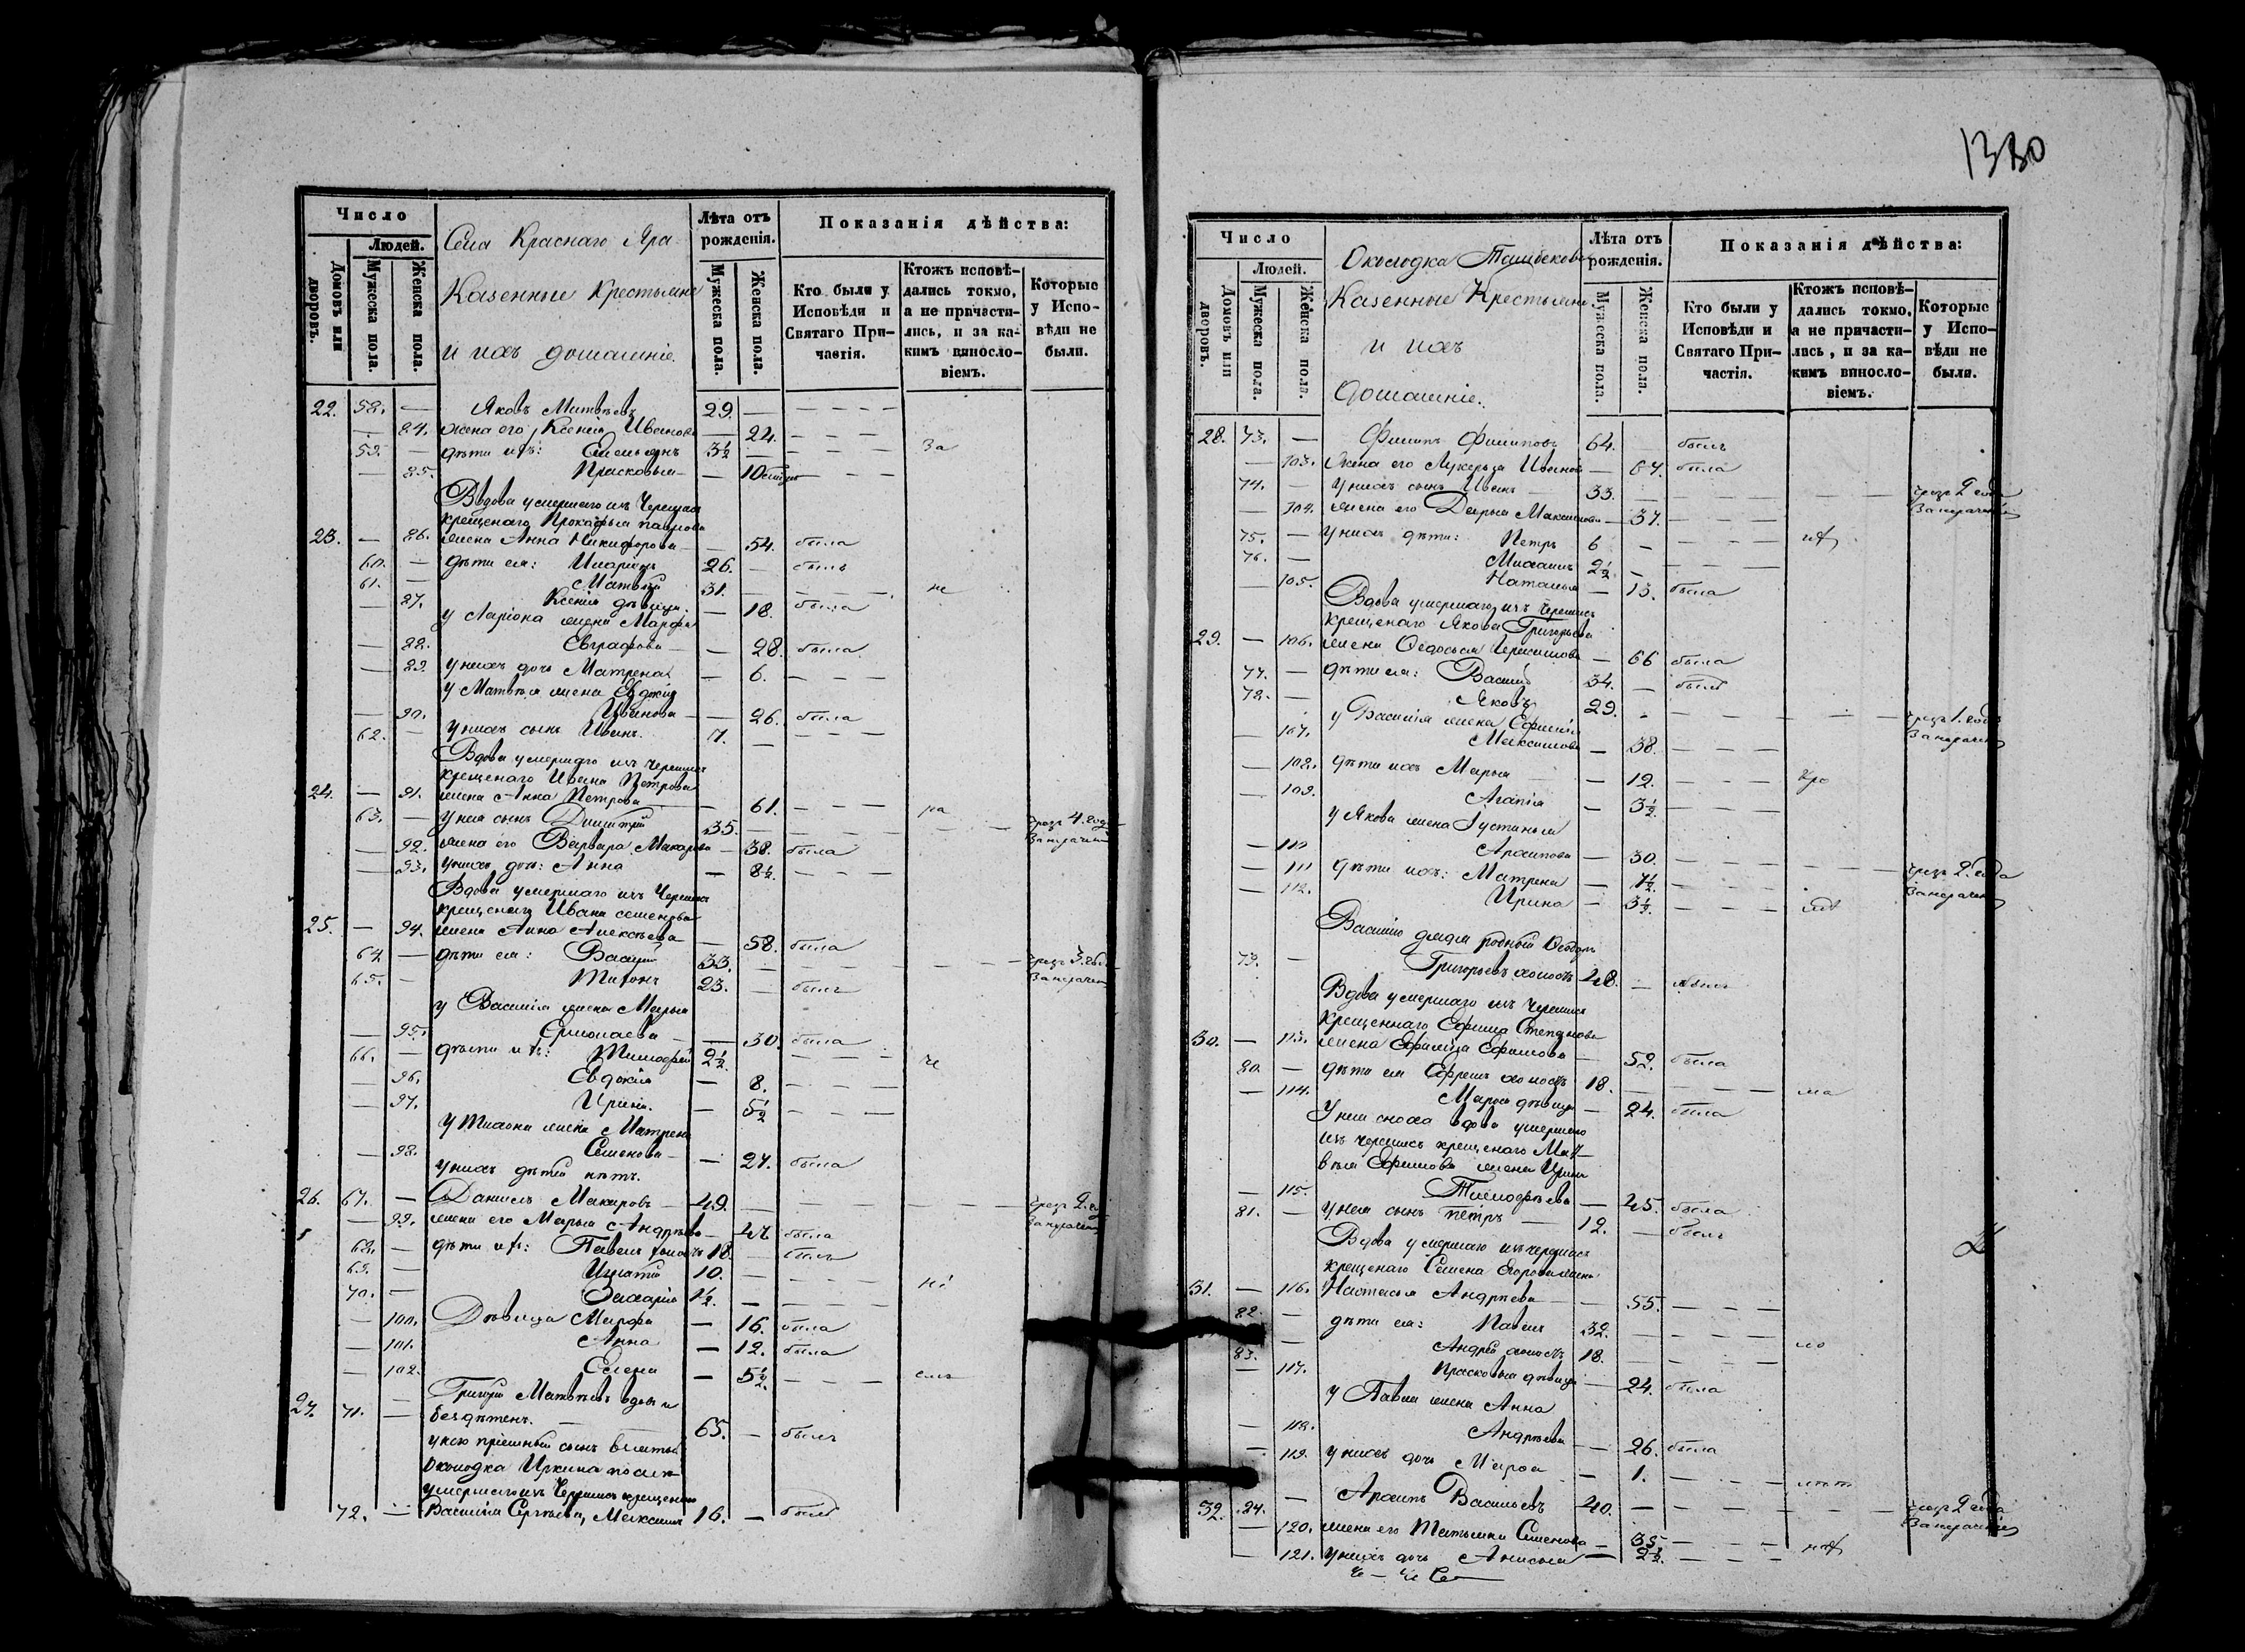 Число
Людей.
Домовъ или дворовъ.
Мужеска пола.
Женска пола.
Села Краснаго Яра
Казенные Крестьяне
и ихъ домашніе.
Лѣта отъ рожденія.
Мужеска пола.
Женска пола.
Показанія дѣйства:
Кто были у Исповѣди и Святаго Причастія.
Ктожъ исповѣдались токмо, а не причастились, и за какимъ винословіемъ.
Которые у Исповѣди не были.
22. 58. — Яковъ Матвѣевъ 29. —
— 84. жена его Ксенія Иванова — 24.
59. — дѣти ихъ: Емельянъ 3½ — за
— 85. Прасковья — 10
Вдова умершаго изъ Черемисъ
крещенаго Прокофья
23. — 86. жена Анна Никифорова — 54. была
60. — дѣти ея: Иларіонъ 26. — былъ
61. — Матвѣй 31. — не
— 87. Ксенія дѣвица — 18. была
у Ларіона жена Марфа
— 88. Евграфова — 28. была
— 89. у нихъ дочь Матрена — 6.
у Матвѣя жена Евдокія
— 90. Иванова — 26. была
62. — у нихъ сынъ Иванъ. 7. —
Вдова умершаго изъ черемисъ
крещенаго Ивана Петрова
24. — 91. жена Анна Петрова — 61. ра
63. — у нея сынъ Димитрій 35. — чрезъ 4. года
— 92. жена его Варвара Макарова — 38. была
— 93. у нихъ дочь: Анна — 8½.
Вдова умершаго изъ Черемисъ
крещенаго Ивана Семенова
25. — 94. жена Анна Алексѣева — 58. была
64. — дѣти ея: Василій 33. — чрезъ 3. года
65. — Тихонъ 23. — былъ
у Василія жена Марья
— 95. Ермолаева — 30. была
66. — дѣти ихъ: Тимофей 2½ че
— 96. Евдокія — 8.
— 97. Ирина. — 5½
у Тихона жена Матрена
— 98. Семенова — 27. была
у нихъ дѣтей нѣтъ.
26. 67. — Данилъ Макаровъ 49. — чрезъ 2. года
— 99. жена его Марья Андрѣева — 47. была
68. — дѣти ихъ: Павелъ холостъ 18. — былъ
69. — Игнатій 10. — ні
70. — Захарій 1½. —
— 100. Дѣвица Марфа — 16. была
— 101. Анна — 12. была
— 102. Елена — 5½.
Григорій Матвѣевъ вдовъ и
27. 71. — бездѣтенъ. 65. — былъ
у него пріемный сынъ взятый
Околодка Иркина послѣ
умершаго изъ Черемисъ крещенаго
72. — Василія Сергѣева, Максимъ 16. — былъ
1380
Число
Людей.
Домовъ или дворовъ.
Мужеска пола.
Женска пола.
Околодка Ташбекова
Казенные Крестьяне
и ихъ
домашніе.
Лѣта отъ рожденія.
Мужеска пола.
Женска пола.
Показанія дѣйства:
Кто были у Исповѣди и Святаго Причастія.
Ктожъ исповѣдались токмо, а не причастились, и за какимъ винословіемъ.
Которые у Исповѣди не были.
28. 73. — Филипъ Филиповъ 64. — былъ
— 103. Жена его Лукерья Иванова — 67. была
74. — у нихъ сынъ Иванъ 33. — чрезъ 2 года
— 104. жена его Дарья Максимова — 37.
75. — у нихъ дѣти: Петръ 6 —
76. — Михаилъ 2½ —
— 105. Наталья — 13. была
Вдова умершаго изъ Черемисъ
крещенаго Якова Григорьева
29. — 106. жена Ѳедосья Герасимова — 66 была
77. — дѣти ея: Василій 34. — былъ
78. — Яковъ 29. — чрезъ 1. годъ
у Василія жена Ефимія
— 107. Максимова — 38.
— 108. дѣти ихъ Марья — 12.
— 109. Агапія — 3½.
у Якова жена Устинья
— 110 Архипова — 30. чрезъ 2. года
— 111 дѣти ихъ: Матрена — 7½.
— 112. Ирина — 3½.
Василію дядя родный
Григорьевъ холостъ 48. — былъ
Вдова умершаго изъ Черемисъ
крещеннаго Ефима Степанова
30. — 113. жена Ефимія Ефимова — 52. была
80. — дѣти ея Ефремъ холостъ 18. — ма
— 114. Марья дѣвица — 24. была
У нея сноха вдова умершаго
изъ черемисъ крещенаго Мат-
вѣя Ефимова жена Ирина
— 115. Тимофѣева — 45. была
81. — у нея сынъ Петръ 12. — былъ
Вдова умершаго изъ черемисъ
крещенаго Семена Егорова жена
31. — 116. Настасья Андрѣева — 55.
82. — дѣти ея: Павелъ 32. —
83. — Андрей холостъ 18. — ло
— 117. Прасковья дѣвица — 24. была
у Павла жена Анна
— 118. Андрѣева — 26. была
— 119. у нихъ дочь Марфа — 1.
32. 84. — Архипъ Васильевъ 40. — чрезъ 2 года
— 120. жена его Татьяна Семенова — 35.
— 121. у нихъ дочь Анисья — 2½.